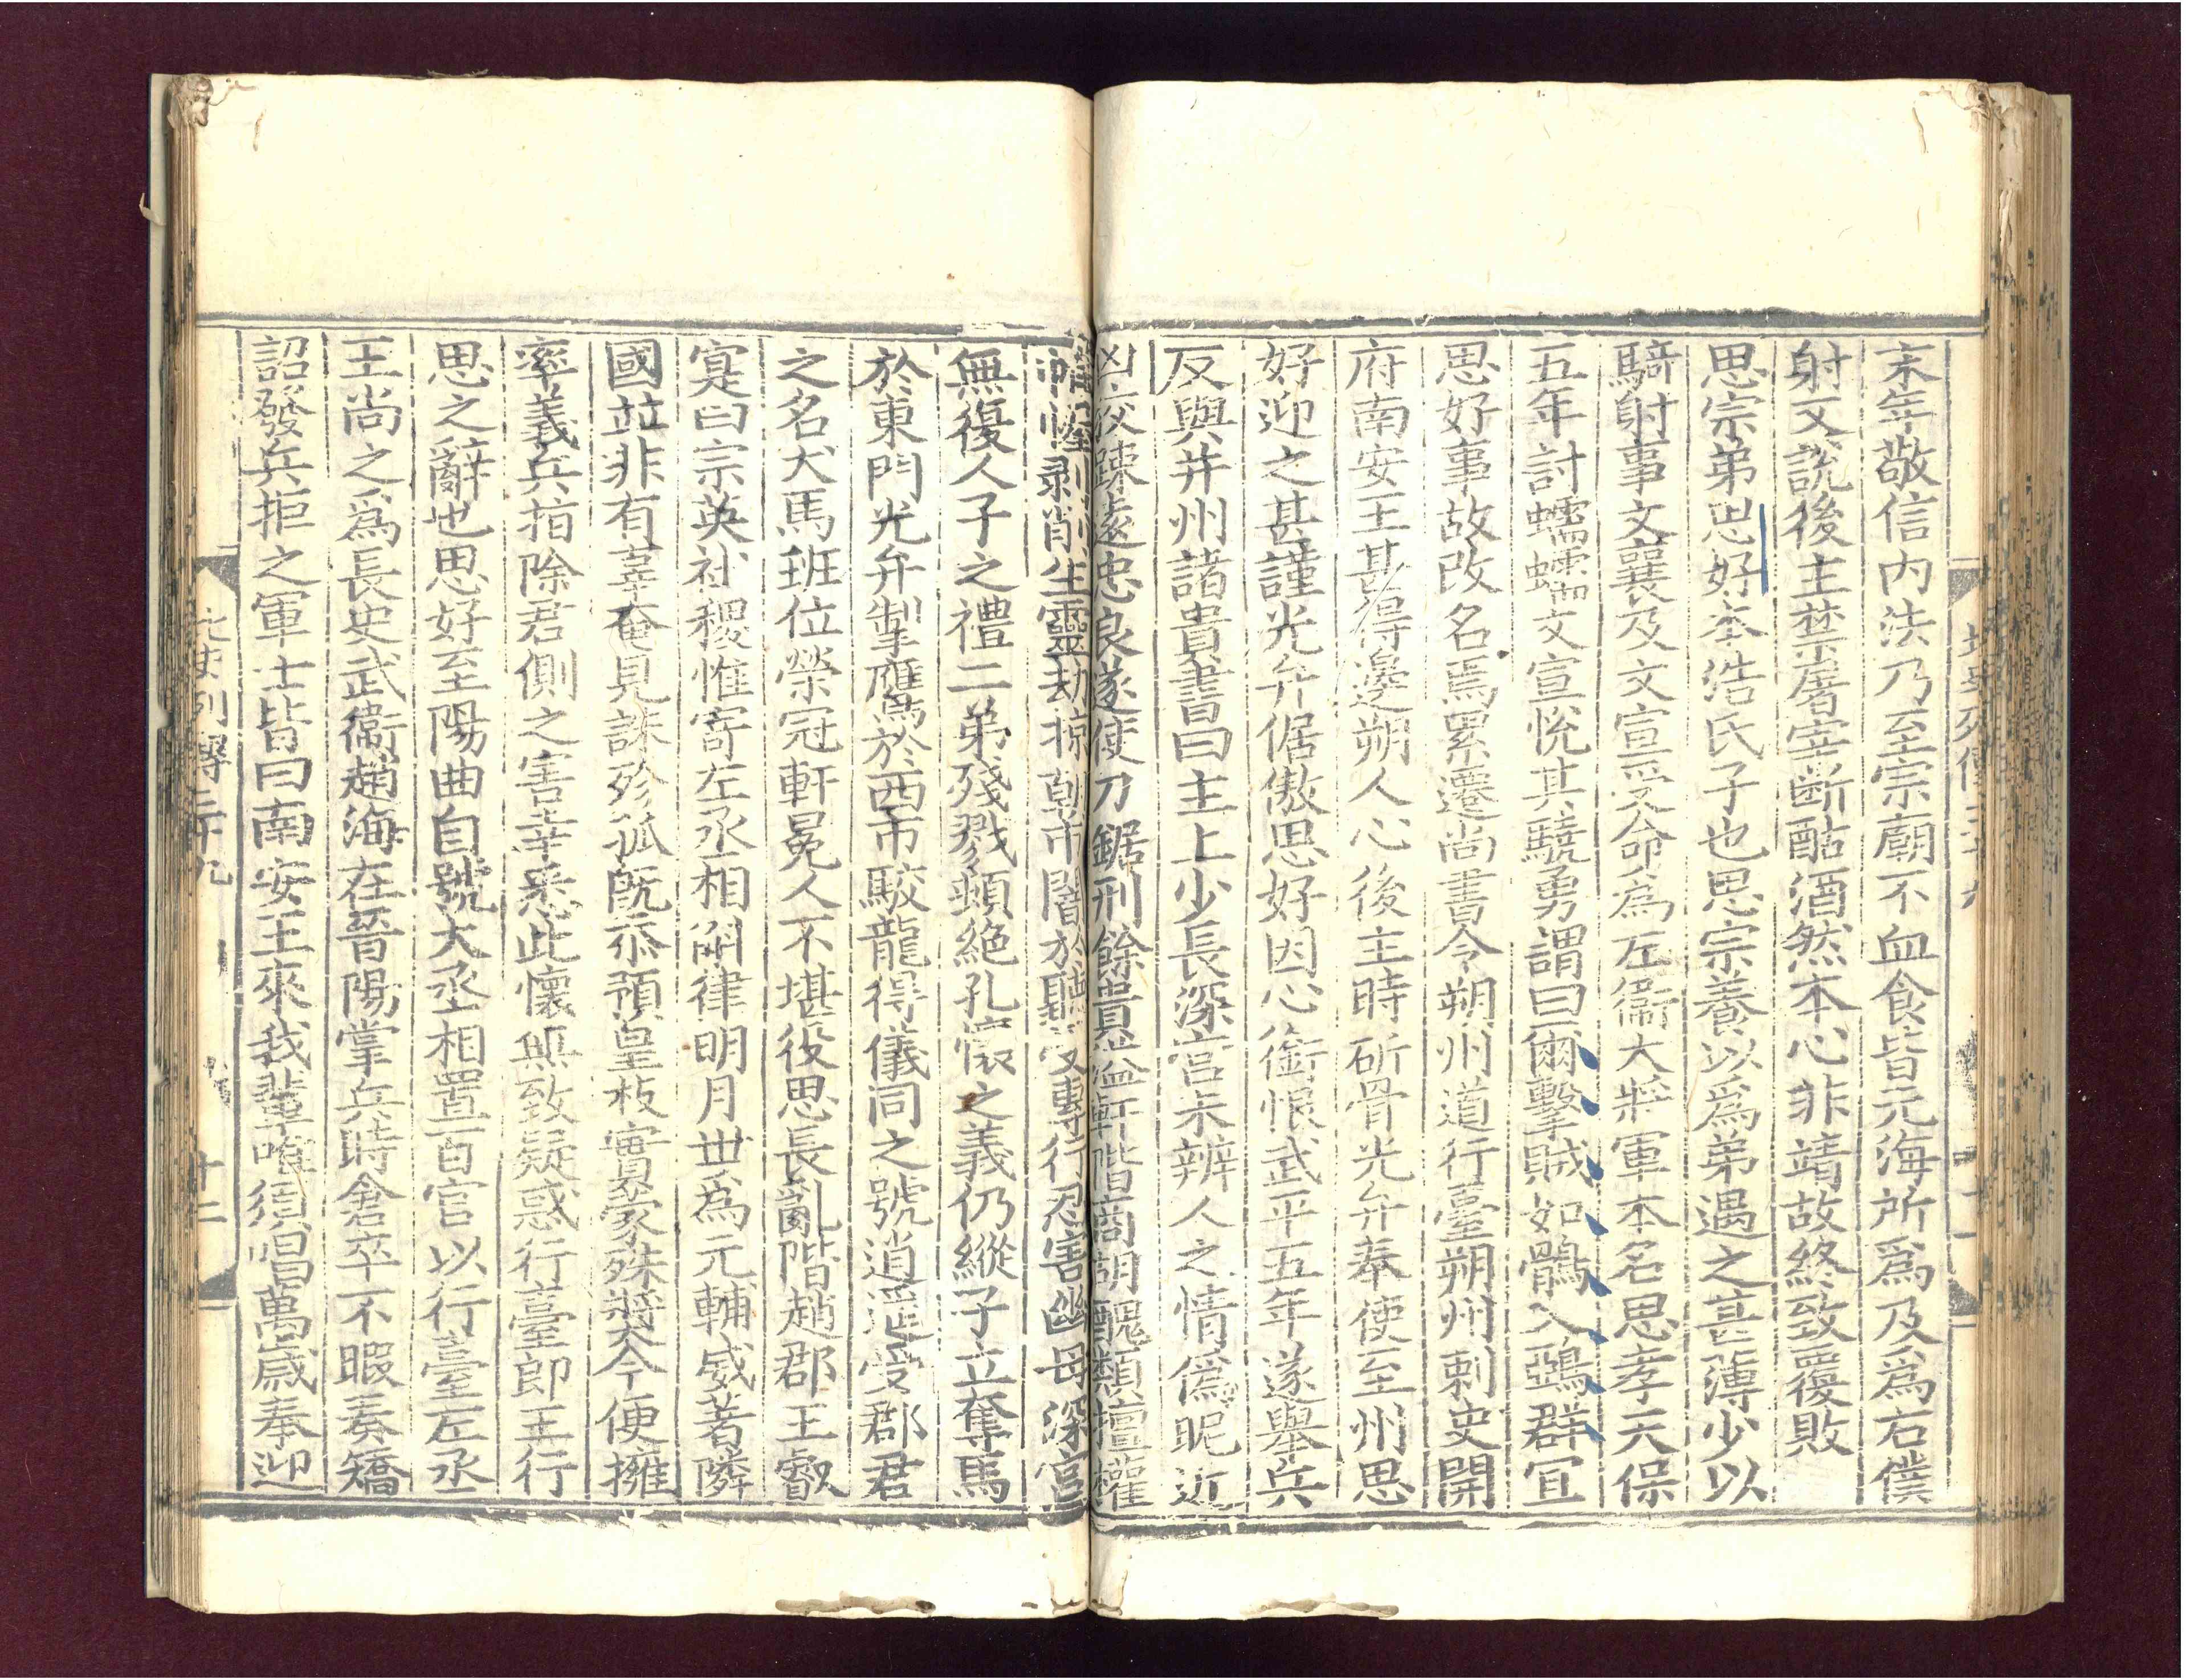 末年敬信内法乃至宗廟不血食皆元海所爲及爲右僕
射又說後主禁屠宰断酤酒然本心非靖故終致覆敗
思宗弟思好本浩氏子也思宗養以爲弟遇之甚薄少以
騎射事文襄及文宣受命爲左衞大將軍本名思孝天保
五年討蠕蠕文宣悅其驍勇謂曰爾擊賊如鶻入鵶群宜
思好事故改名焉累遷尚書令朔州道行臺朔州刺史開
府南安王甚得邊朔人心後主時斫骨光弁奉使至州思
好迎之甚謹光弁倨傲思好因心銜恨武平五年遂舉兵
反與并州諸貴書曰主上少長深宫未辨人之情僞昵近
凶狡踈遠忠良遂使刀鋸刑餘貴溢軒階商胡醜類擅權
帷幄剥削生靈劫掠朝市闇於聽受專行忍害幽母深宫
無復人子之禮二弟殘戮頓絶孔懷之義仍縱子立奪馬
於東門光弁掣鷹於西市駮龍得儀同之號逍遥受郡君
之名犬馬班位榮冠軒冕人不堪役思長亂階趙郡王叡
寔曰宗英社稷惟寄左丞相斛律明月丗爲元輔威著隣
國並非有辜奄見誅殄孤旣忝預皇枝實蒙殊奬今便擁
率義兵指除君側之害幸悉此懷無致疑惑行臺郎王行
思之辭也思好至陽曲自號大丞相置百官以行臺左丞
王尚之爲長史武衞趙海在晉陽掌兵時倉卒不暇奏矯
詔發兵拒之軍士皆曰南安王來我輩唯須唱萬歲奉迎
北史列傳三十九
十二